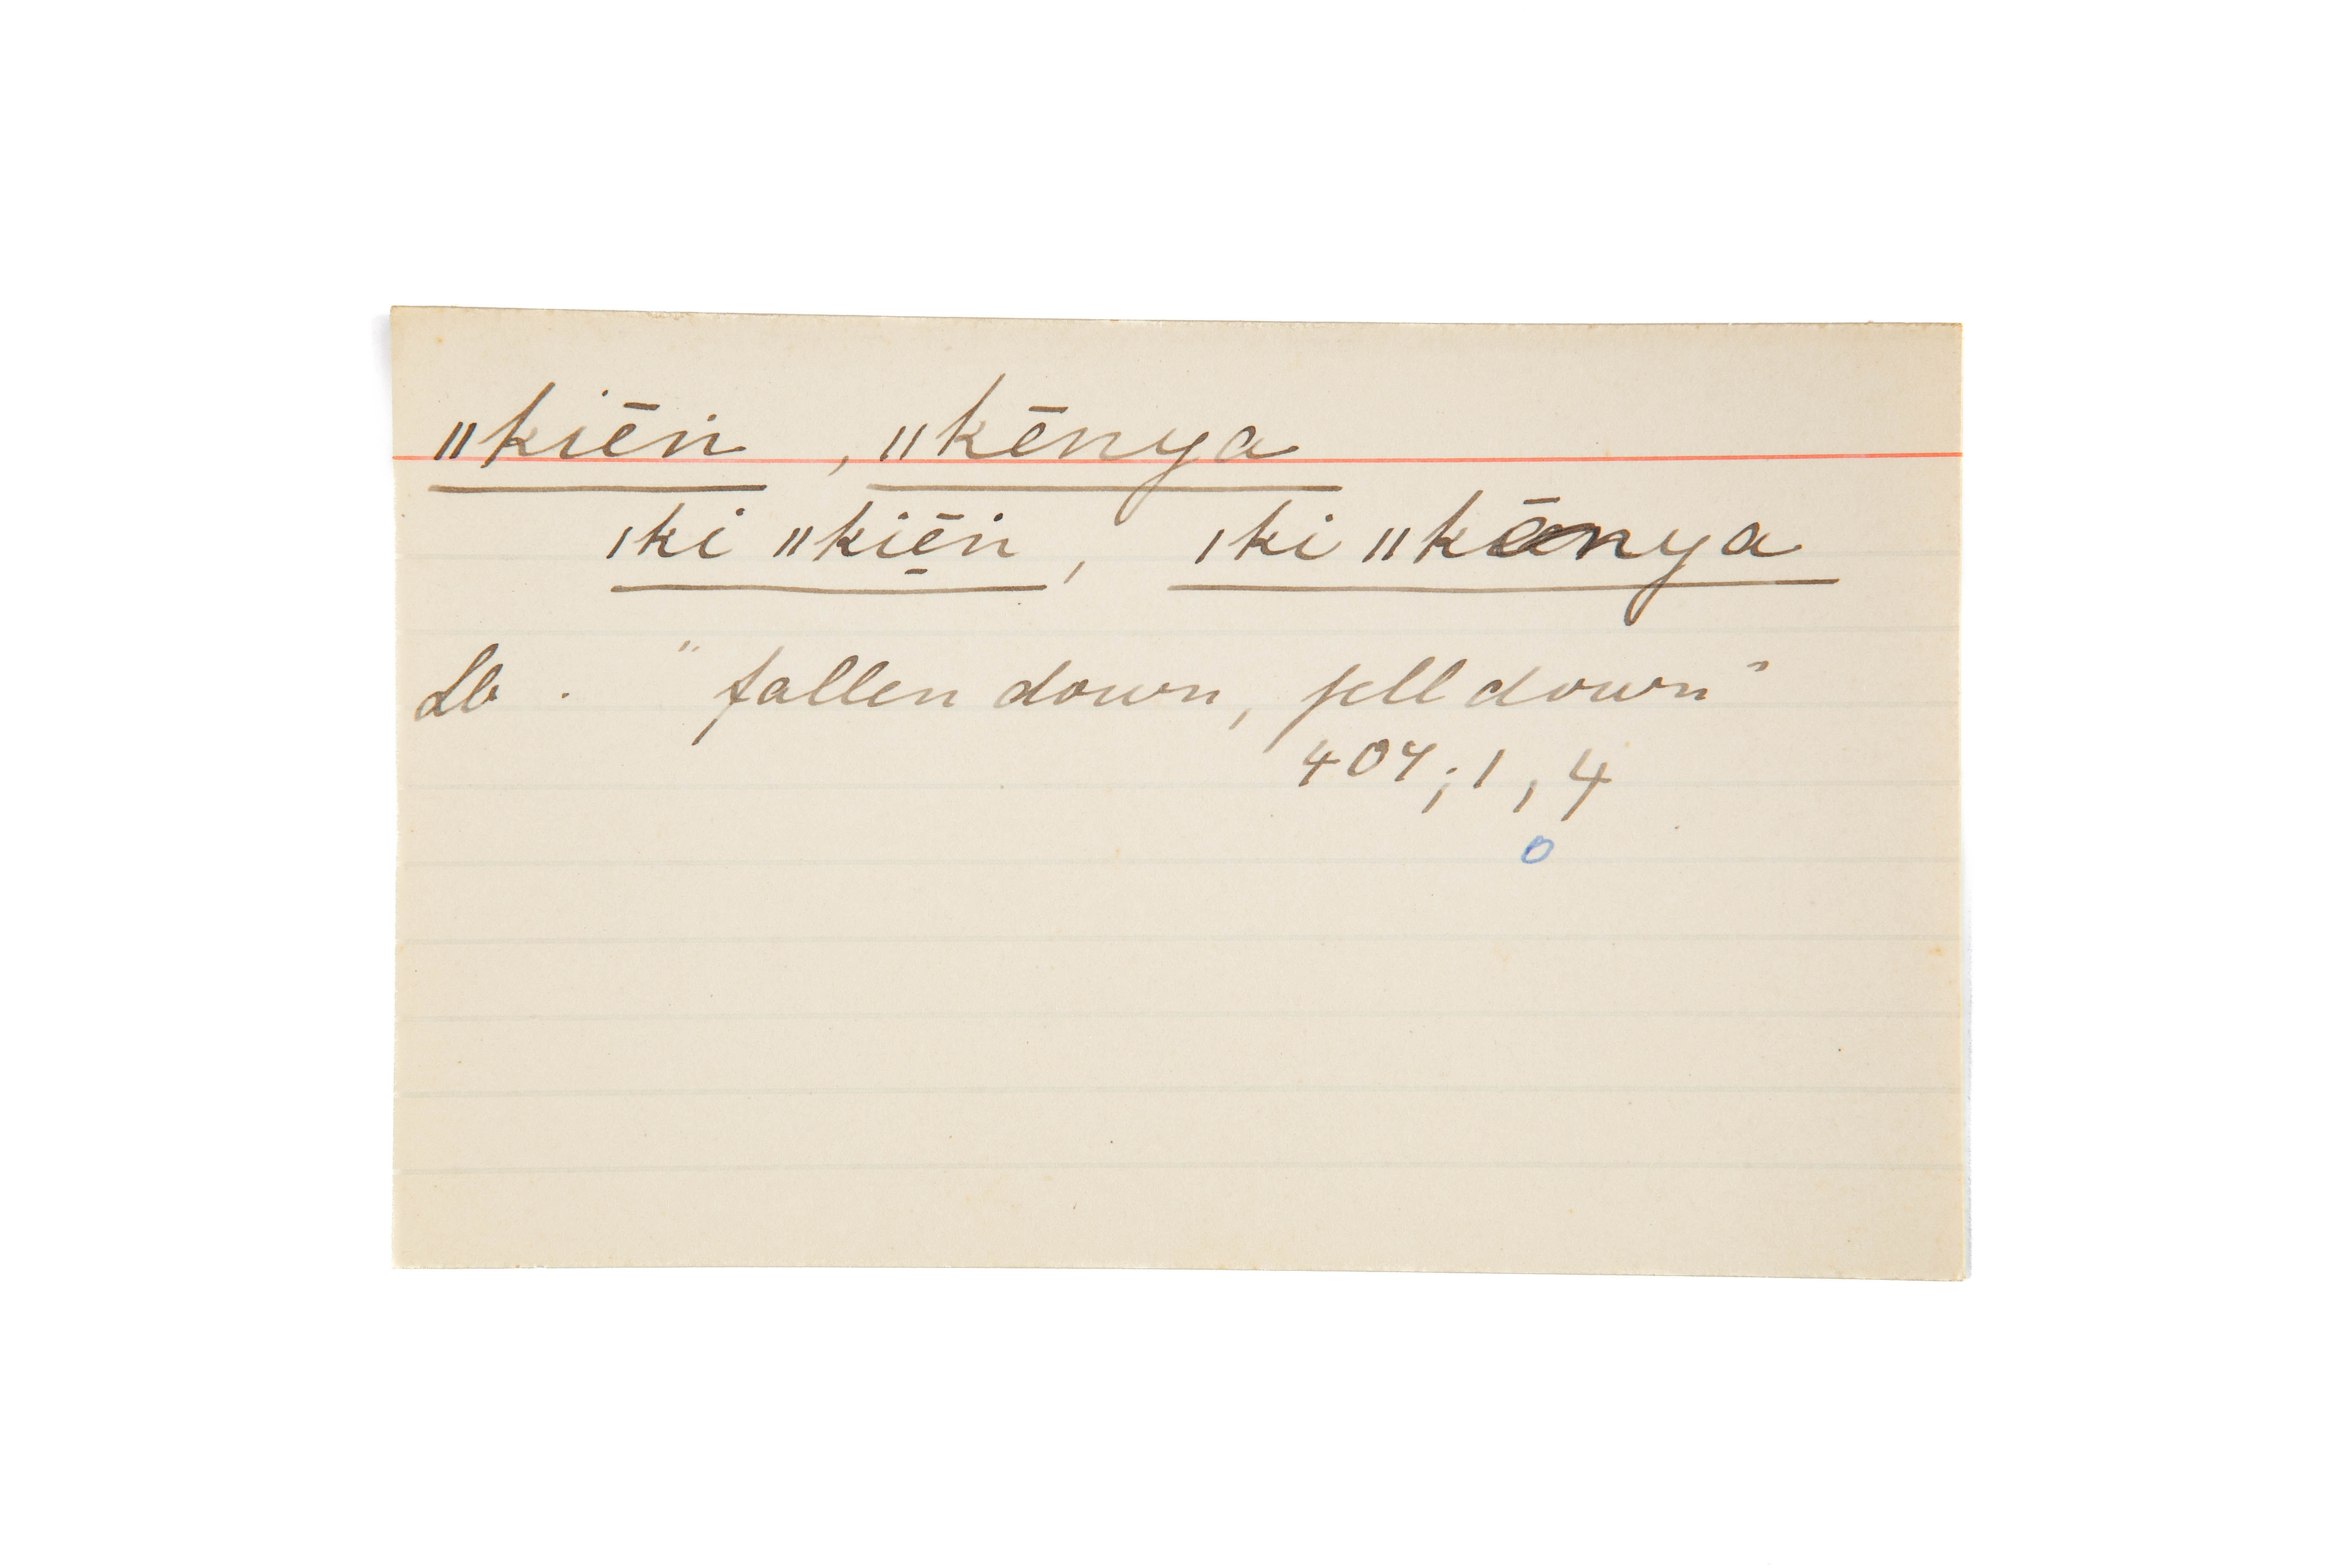 ǁkiēṅ , ǁkēnya
ǀki ǁkiē̠ṅ , ǀki ǁkēnya
Lb . " fallen down, fell down"
407; 1, 4
0